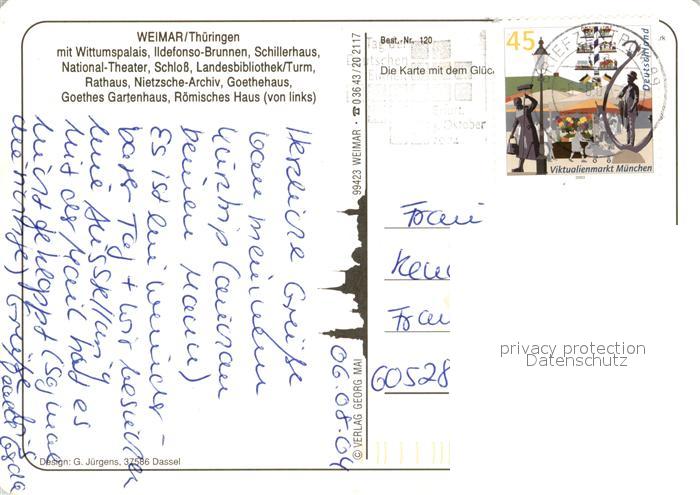 WEIMAR/Thüringen
mit Wittumspalais, Ildefonso-Brunnen, Schillerhaus,
National-Theater, Schloß, Landesbibliothek/Turm,
Rathaus, Nietzsche-Archiv, Goethehaus,
Goethes Gartenhaus, Römisches Haus (von links)
Best.-Nr. 120
Die Karte mit dem Glüc
45
Deutschland
Viktualienmarkt München
Herzliche Grüße
von meinem
Kurztrip
meinen Mann)
Es ist ein wunder-
barer Tag + wir besuchen
eine Ausstellung
mit der Mail hat es
nicht geklappt
Grüße
06.08.04
99423 WEIMAR · ☎ 0 36 43 / 20 21 17
© VERLAG GEORG MAI
Frau
60528
privacy protection
Datenschutz
Design: G. Jürgens, 37586 Dassel